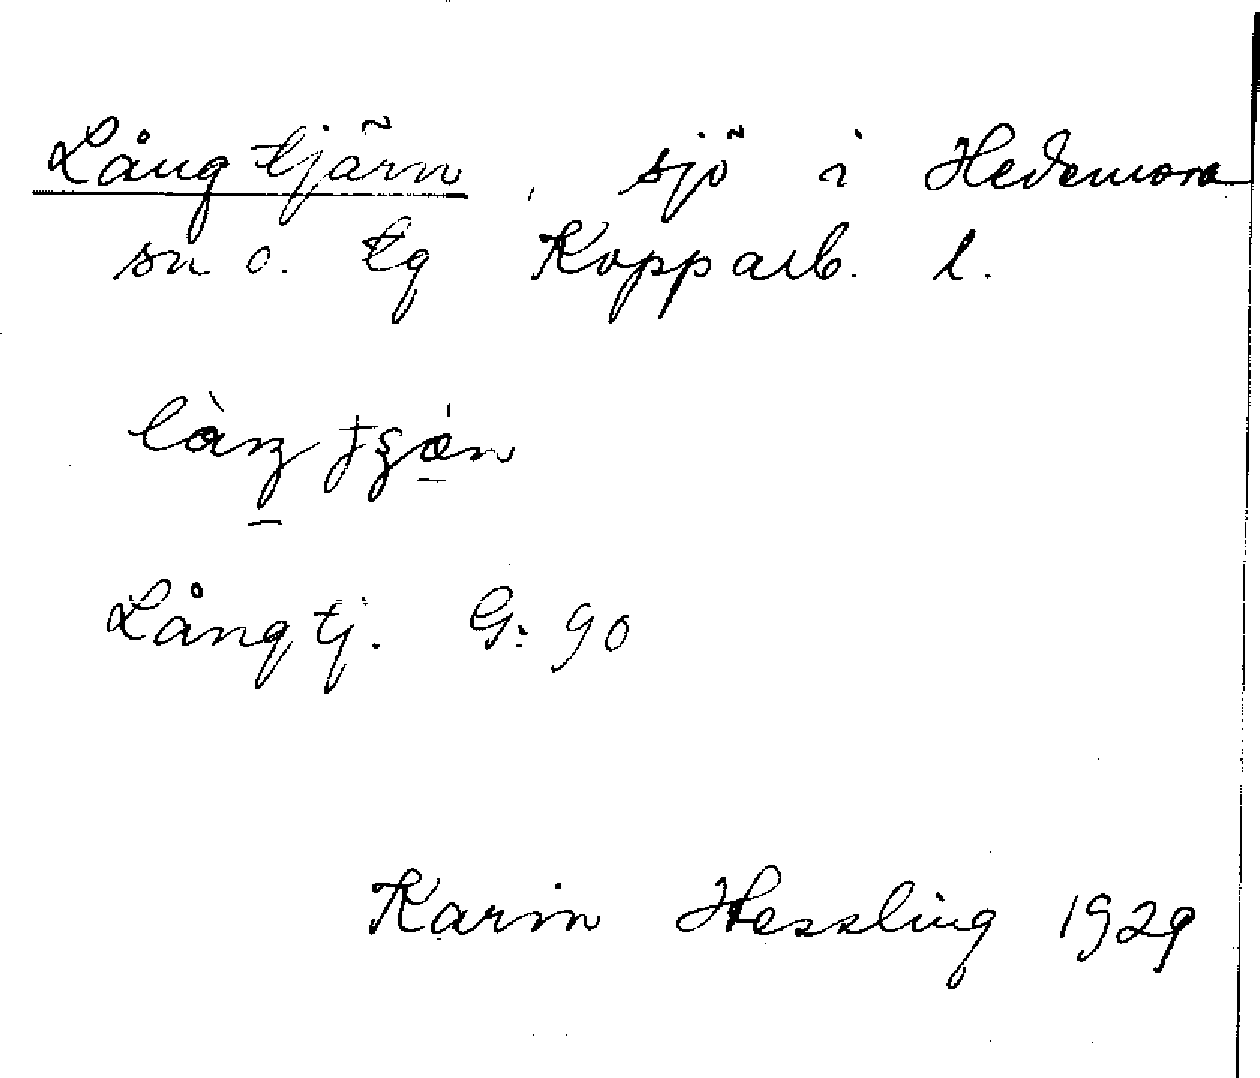 Långtjärn, sjö i Hedemora
sn o. tg Kopparb. l.
Långtj. G: 90
Karin Hessling 1929